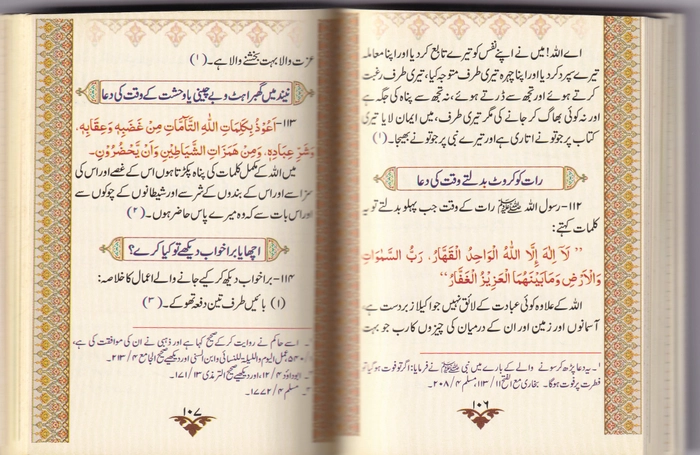 اے اللہ! میں نے اپنے نفس کو تیرے تابع کر دیا اور اپنا معاملہ
تیرے سپرد کر دیا اور اپنا چہرہ تیری طرف متوجہ کیا، تیری طرف رغبت
کرتے ہوئے اور تجھ سے ڈرتے ہوئے، نہ تجھ سے پناہ کی جگہ ہے
اور نہ کوئی بھاگ کر جانے کی مگر تیری طرف، میں ایمان لایا تیری
کتاب پر جو تو نے اتاری ہے اور تیرے نبی پر جو تو نے بھیجا۔ (۱)
رات کو کروٹ بدلتے وقت کی دعا
۱۱۲- رسول اللہ ﷺ رات کے وقت جب پہلو بدلتے تو یہ
کلمات کہتے:
’’ لَآ اِلٰهَ اِلَّا اللّٰهُ الْوَاحِدُ الْقَهَّارُ، رَبُّ السَّمٰوَاتِ
وَالْاَرْضِ وَمَا بَيْنَهُمَا الْعَزِيْزُ الْغَفَّارُ‘‘
اللہ کے علاوہ کوئی عبادت کے لائق نہیں جو اکیلا زبردست ہے،
آسمانوں اور زمین اور ان کے درمیان کی چیزوں کا رب جو بہت
۱- یہ دعا پڑھ کر سونے والے کے بارے میں نبی ﷺ نے فرمایا: اگر تو فوت ہو گیا تو
فطرت پر فوت ہوگا۔ بخاری مع الفتح ۱۱/ ۱۱۳، مسلم ۴/ ۲۰۸
۱۰۶
عزت والا بہت بخشنے والا ہے۔ (۱)
نیند میں گھبراہٹ و بے چینی یا وحشت کے وقت کی دعا
۱۱۳- اَعُوْذُ بِكَلِمَاتِ اللّٰهِ التَّآمَّاتِ مِنْ غَضَبِهٖ وَعِقَابِهٖ،
وَشَرِّ عِبَادِهٖ، وَمِنْ هَمَزَاتِ الشَّيَاطِيْنِ وَاَنْ يَّحْضُرُوْنِ۔
میں اللہ کے مکمل کلمات کی پناہ پکڑتا ہوں اس کے غصے اور اس کی
سزا سے اور اس کے بندوں کے شر سے اور شیطانوں کے چوکوں سے
اور اس بات سے کہ وہ میرے پاس حاضر ہوں۔ (۲)
اچھا یا برا خواب دیکھے تو کیا کرے؟
۱۱۴- برا خواب دیکھ کر کیے جانے والے اعمال کا خلاصہ:
(۱) بائیں طرف تین دفعہ تھوکے۔ (۳)
اسے حاکم نے روایت کر کے صحیح کہا ہے اور ذہبی نے ان کی موافقت کی ہے،
۱/ ۵۴۰ عمل الیوم واللیلہ للنسائی وابن السنی اور دیکھیے صحیح الجامع ۴/ ۲۱۳۔
ابوداؤد ۴/ ۱۲، اور دیکھیے صحیح الترمذی ۳/ ۱۷۱۔
مسلم ۴/ ۱۷۷۲۔
۱۰۷